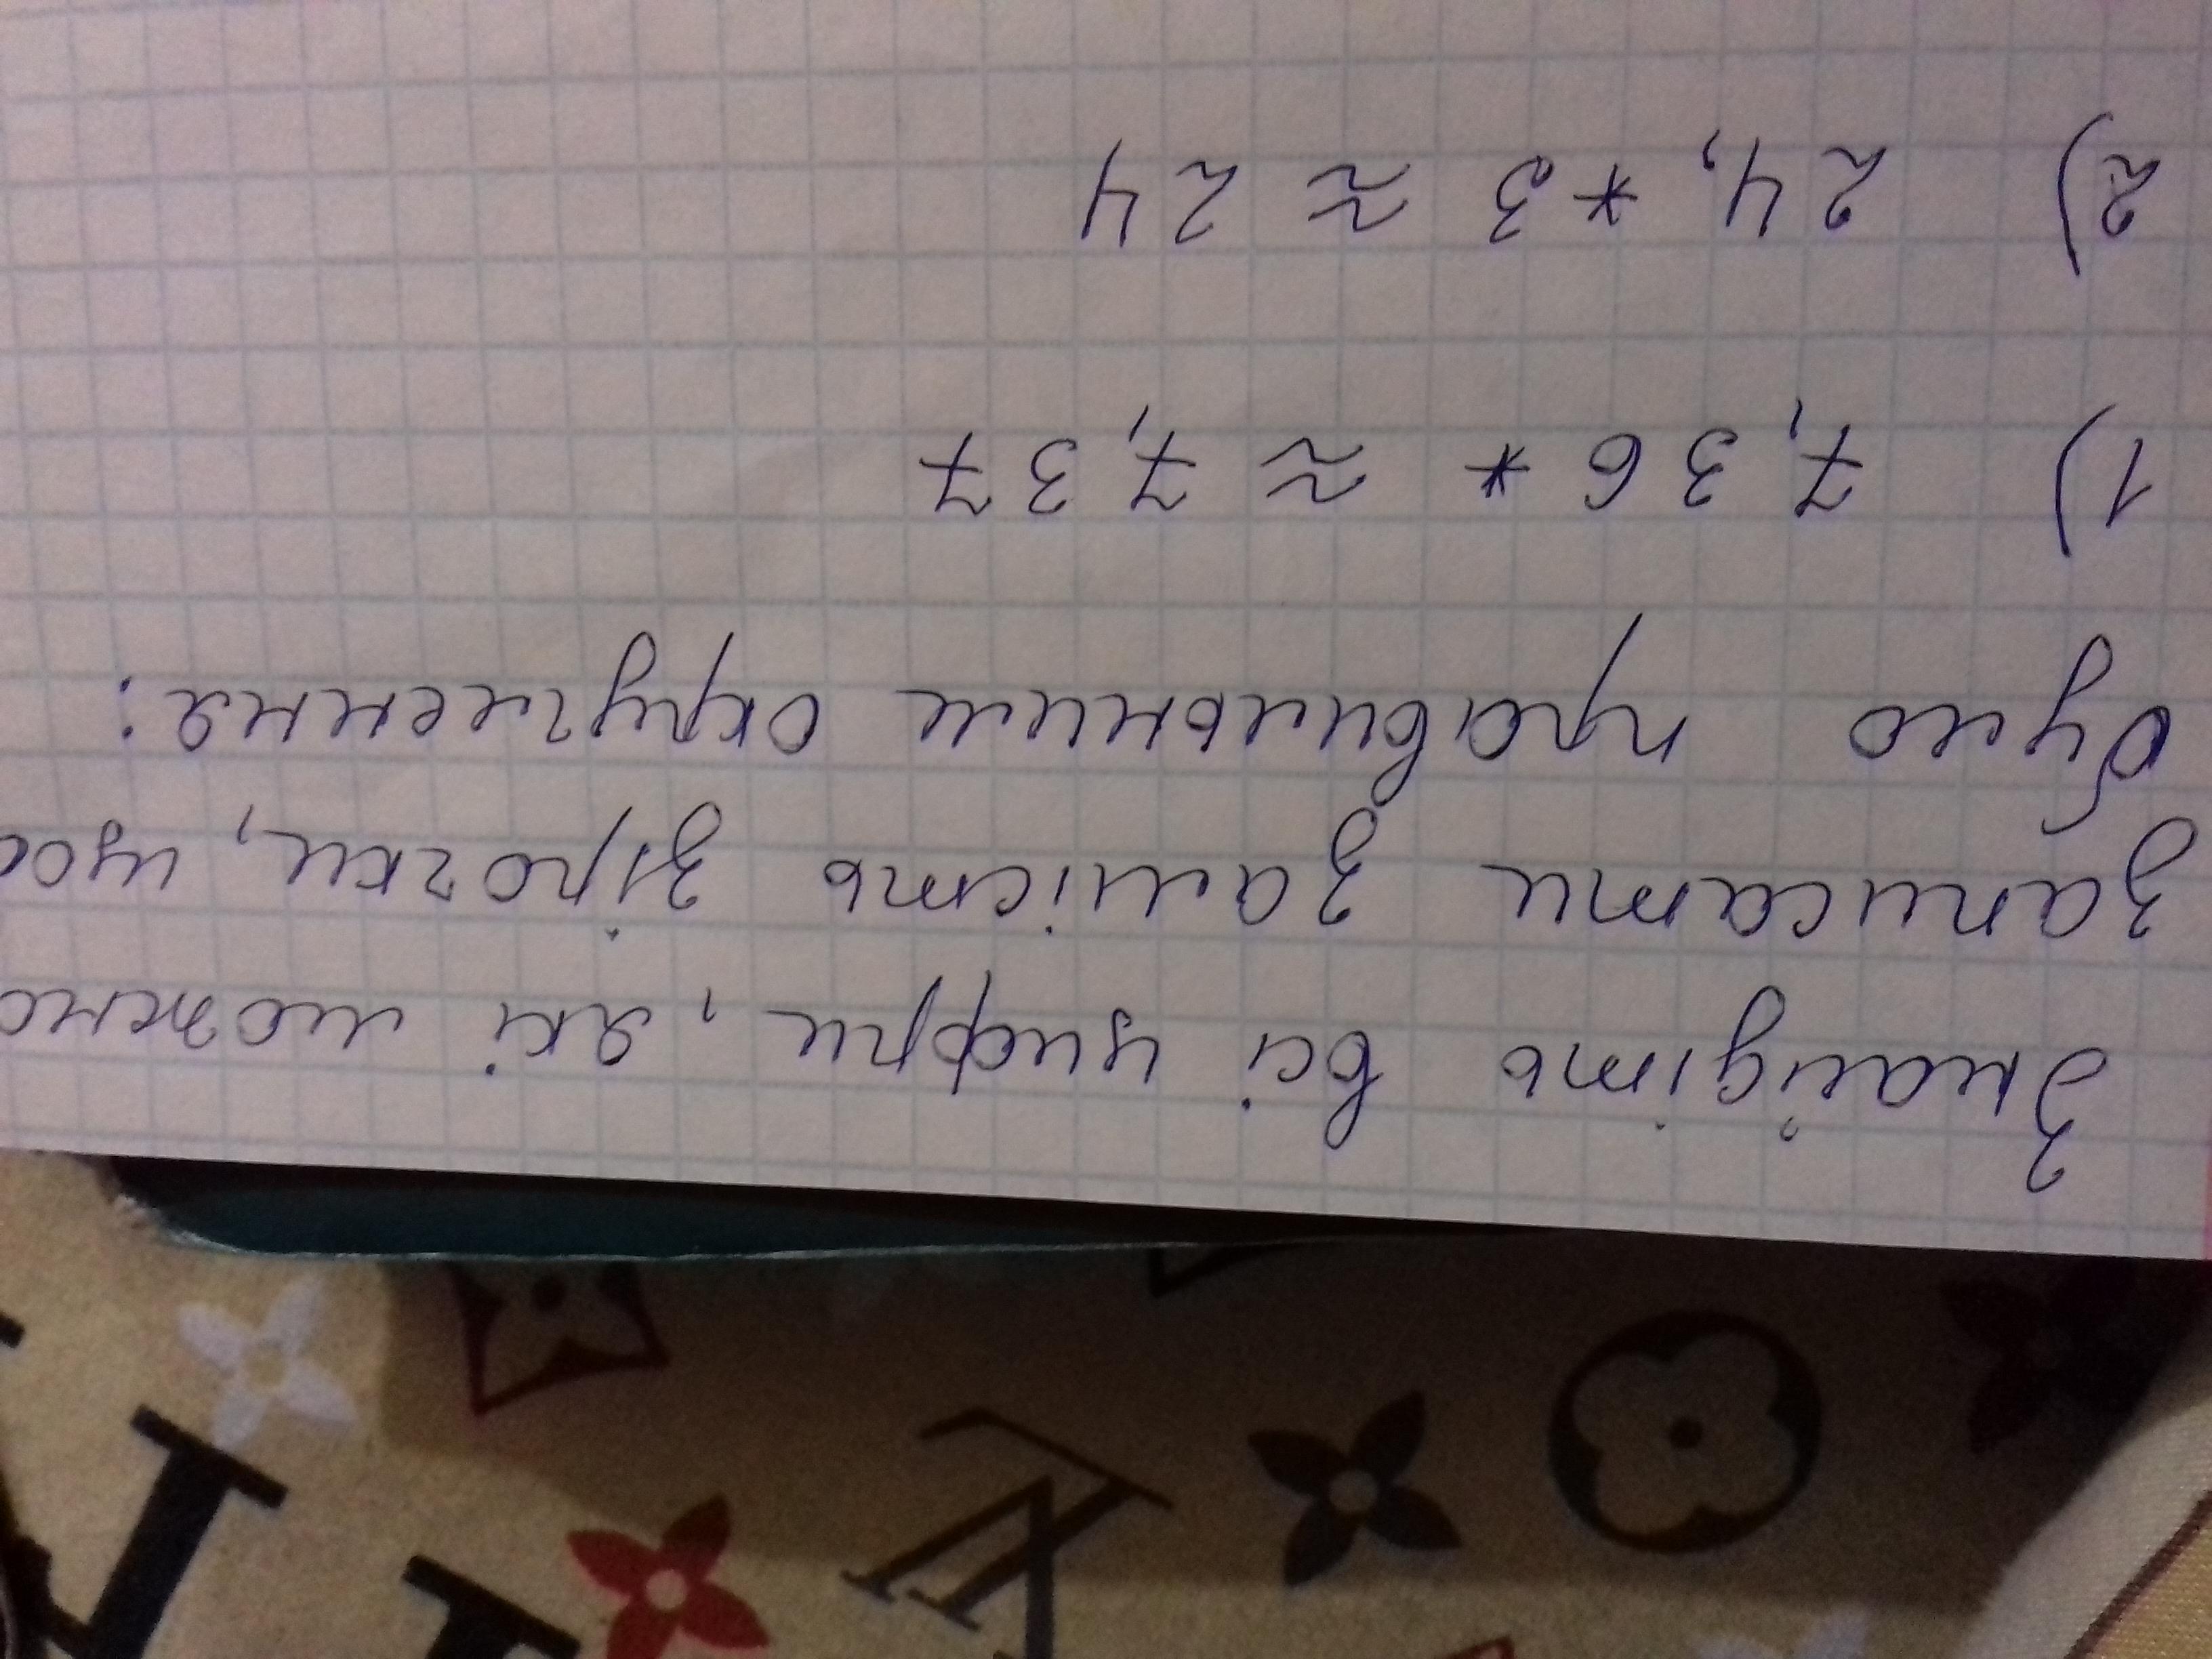 Знайдіть всі цифри, які можно
записати замість зірочки, щоб
було правильним округлення:
1) 7,36* ≈ 7,37
2) 24,*3 ≈ 24